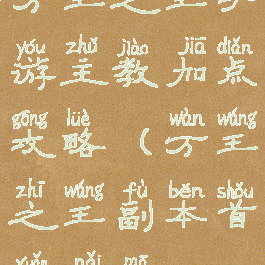 万王之王手
yóu zhǔ jiào jiā diǎn
游主教加点
gōng lüè wàn wáng
攻略（万王
zhī wáng fù běn shǒu
之王副本首
xuǎn nǎi mā